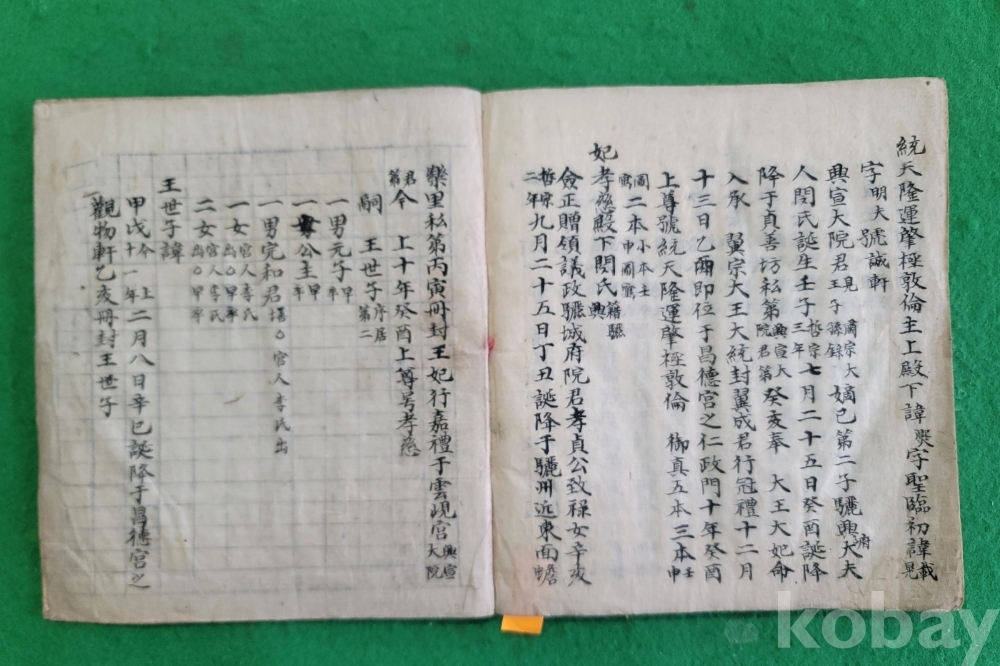 統天隆運肇極敦倫主上殿下諱㷩字聖臨初諱載晃
字明夫號誠軒
興宣大院君見王子孫錄肅宗大嫡己第二子驪興府大夫
人閔氏誕生壬子哲宗三年七月二十五日癸酉誕降
降于貞善坊私第興宣大院君第癸亥奉 大王大妃命
入承 翼宗大王大統封翼成君行冠禮十二月
十三日乙酉即位于昌德宮之仁政門十年癸酉
上尊號統天隆運肇極敦倫 御真五本三本壬申
圖寫二本小本壬申圖寫
妃孝慈殿下閔氏籍驪興
僉正贈領議政驪城府院君孝貞公致祿女辛亥
哲宗二年九月二十五日丁丑誕降于驪州近東面蟾
樂里私第丙寅冊封王妃行嘉禮于雲峴宮興宣大院
君第今 上十年癸酉上尊号孝慈
嗣 王世子序居第二
一男元子甲卒
一公主甲卒
一男完和君墡○宮人李氏出
一女宮人李氏出○甲卒
二女宮人李氏出○甲卒
王世子諱
甲戌今上十一年二月八日辛巳誕降于昌德宮之
觀物軒乙亥冊封王世子
kobay